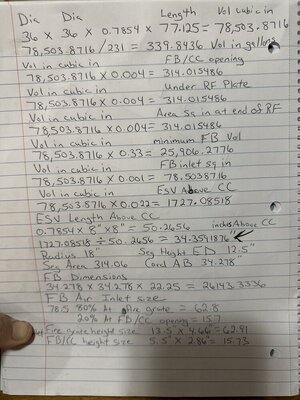 Dia Dia Length Vol cubic in
36 x 36 x 0.7854 x 77.125 = 78,503.8716
78,503.8716 / 231 = 339.8436 Vol in gallons
Vol in cubic in FB/CC opening
78,503.8716 x 0.004 = 314.015486
Vol in cubic in Under RF Plate
78,503.8716 x 0.004 = 314.015486
Vol in Cubic in Area Sq in at end of RF
78,503.8716 x 0.004 = 314.015486
Vol in Cubic in minimum FB Vol
78,503.8716 x 0.33 = 25,906.2776
Vol in cubic in FB inlet sq in
78,503.8716 x 0.001 = 78.5038716
Vol in cubic in ESV Above CC
78,503.8716 x 0.022 = 1727.08518
ESV Length Above CC
0.7854 x 8" x 8" = 50.2656 inches Above CC
1727.08518 ÷ 50.2656 = 34.3591876"
Radius 18" Seg Height ED 12.5"
Seg Area 314.06 Cord AB 34.278"
FB Dimensions
34.278 x 34.278 x 22.25 = 26143.3336
FB Air Inlet size
78.5 80% At Fire grate = 62.8
20% At FB/CC opening = 15.7
Fire grate height size 13.5 x 4.66 = 62.91
FB/CC height size 5.5" x 2.86" = 15.73